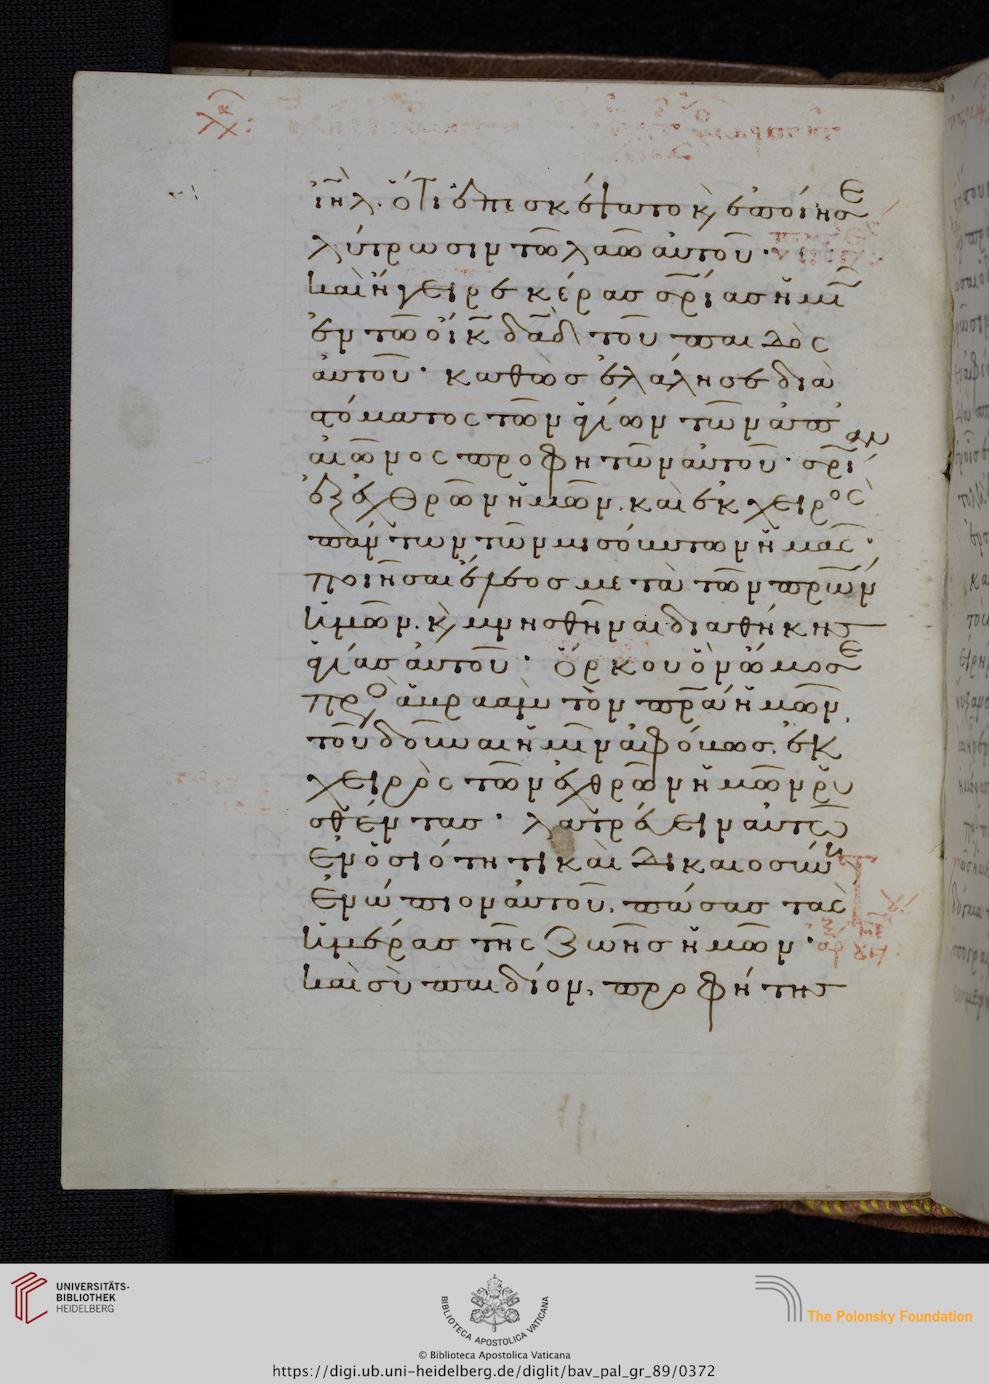 ιηλ. ὅτι ἐπεσκέψατο κ ἐποίησε
λύτρωσιν τῶ λαῶ αὐτοῦ·
καὶ ἤγειρε κέρας σρίας ἡμῖν
ἐν τῶ οἴκ δαδ τοῦ παιδὸς
αὐτοῦ· καθὼς ἐλάλησε διὰ
στόματος τῶν ἁγίων τῶν ἀπ
αἰῶνος προφητῶν αὐτοῦ· σρίαν
ἐξ ἐχθρῶν ἡμῶν. καὶ ἐκ χειρὸς
πάντων τῶν μισούντων ἡμᾶς·
ποιῆσαι ἔλεος μετὰ τῶν πρων
ἡμῶν. κ μνησθῆναι διαθήκης
ἁγίας αὐτοῦ· ὅρκον ὃν ὤμοσε
προς ἀβρααμ τὸν πρα ἡμῶν,
τοῦ δοῦναι ἡμῖν ἀφόβως. ἐκ
χειρὸς τῶν ἐχθρῶν ἡμῶν ῥυ
σθέντας· λατρεύειν αὐτῶ
ἐν ὁσιότητι καὶ δικαιοσύνη
ἐνώπιον αὐτοῦ, πάσας τὰς
ἡμέρας τῆς ζωῆς ἡμῶν·
καὶ σὺ παιδίον, προφήτης
UNIVERSITÄTS-
BIBLIOTHEK
HEIDELBERG
BIBLIOTECA APOSTOLICA VATICANA
The Polonsky Foundation
© Biblioteca Apostolica Vaticana
https://digi.ub.uni-heidelberg.de/diglit/bav_pal_gr_89/0372